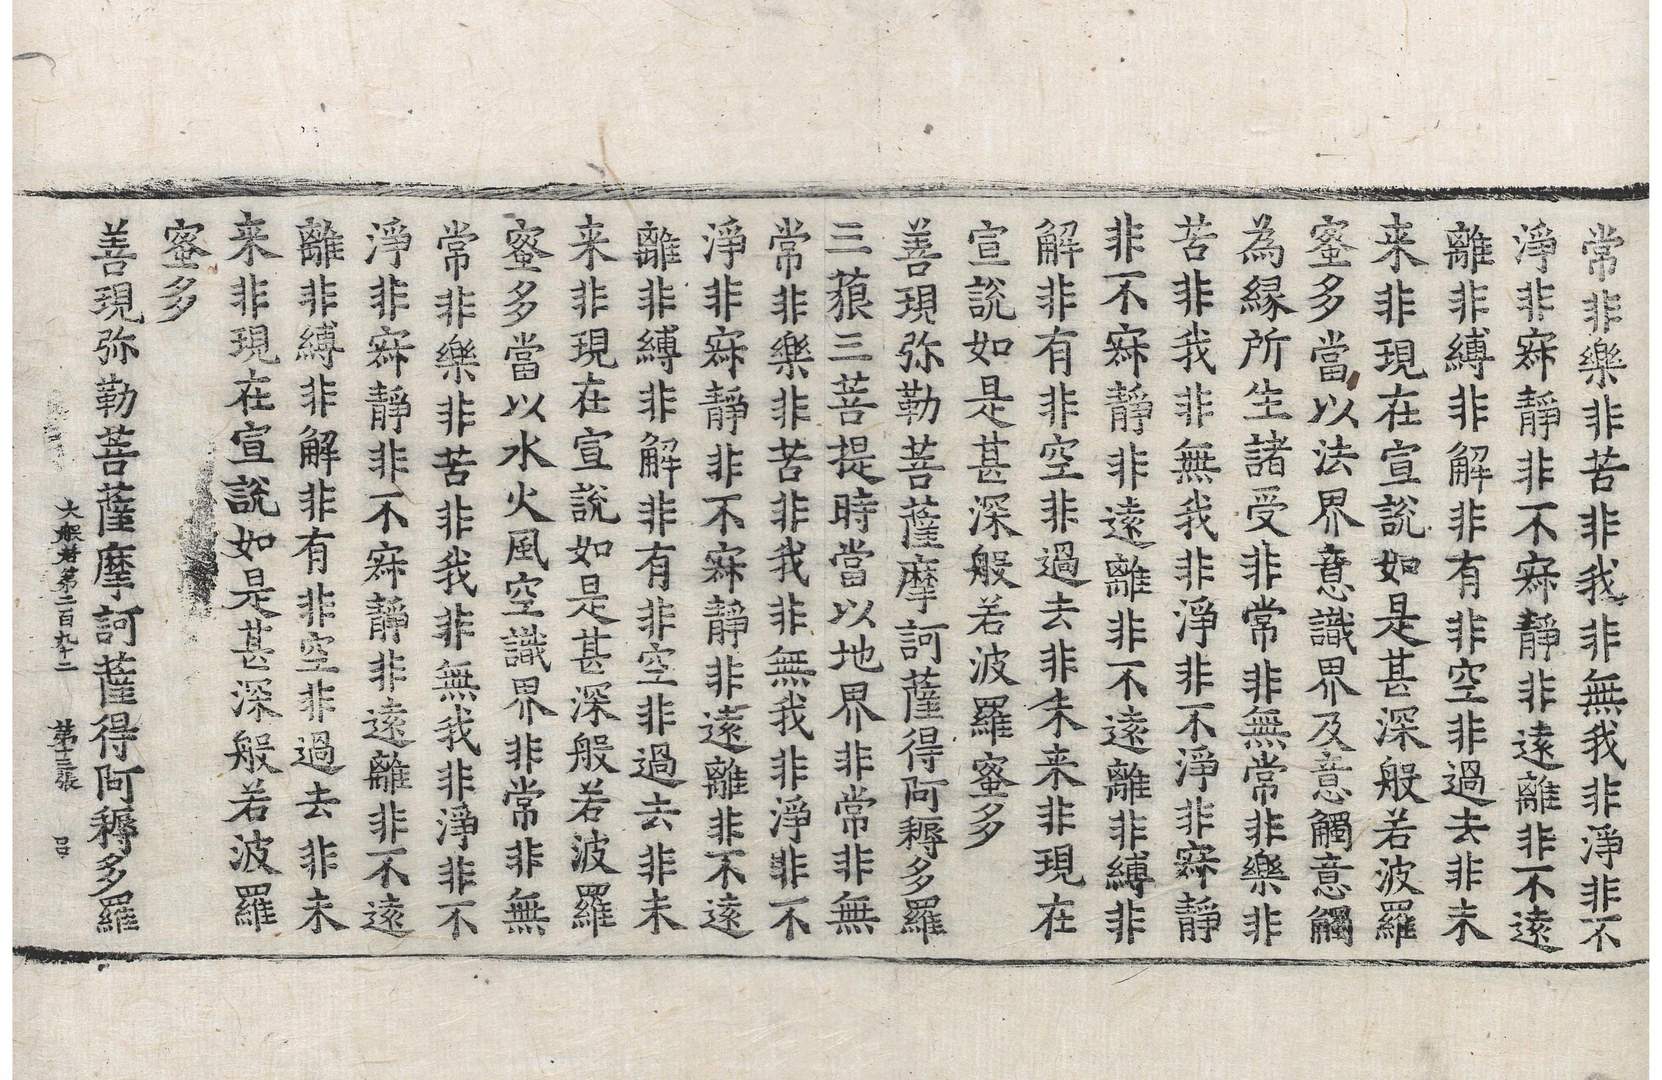 常非樂非苦非我非無我非淨非不
淨非寂靜非不寂靜非遠離非不遠
離非縛非解非有非空非過去非未
来非現在宣說如是甚深般若波羅
蜜多當以法界意識界及意觸意觸
為緣所生諸受非常非無常非樂非
苦非我非無我非淨非不淨非寂靜
非不寂靜非遠離非不遠離非縛非
解非有非空非過去非未来非現在
宣說如是甚深般若波羅蜜多
善現弥勒菩薩摩訶薩得阿耨多羅
三藐三菩提時當以地界非常非無
常非樂非苦非我非無我非淨非不
淨非寂靜非不寂靜非遠離非不遠
離非縛非解非有非空非過去非未
来非現在宣說如是甚深般若波羅
蜜多當以水火風空識界非常非無
常非樂非苦非我非無我非淨非不
淨非寂靜非不寂靜非遠離非不遠
離非縛非解非有非空非過去非未
来非現在宣說如是甚深般若波羅
蜜多
善現弥勒菩薩摩訶薩得阿耨多羅
大般若第二百九十二 第十三張 吕